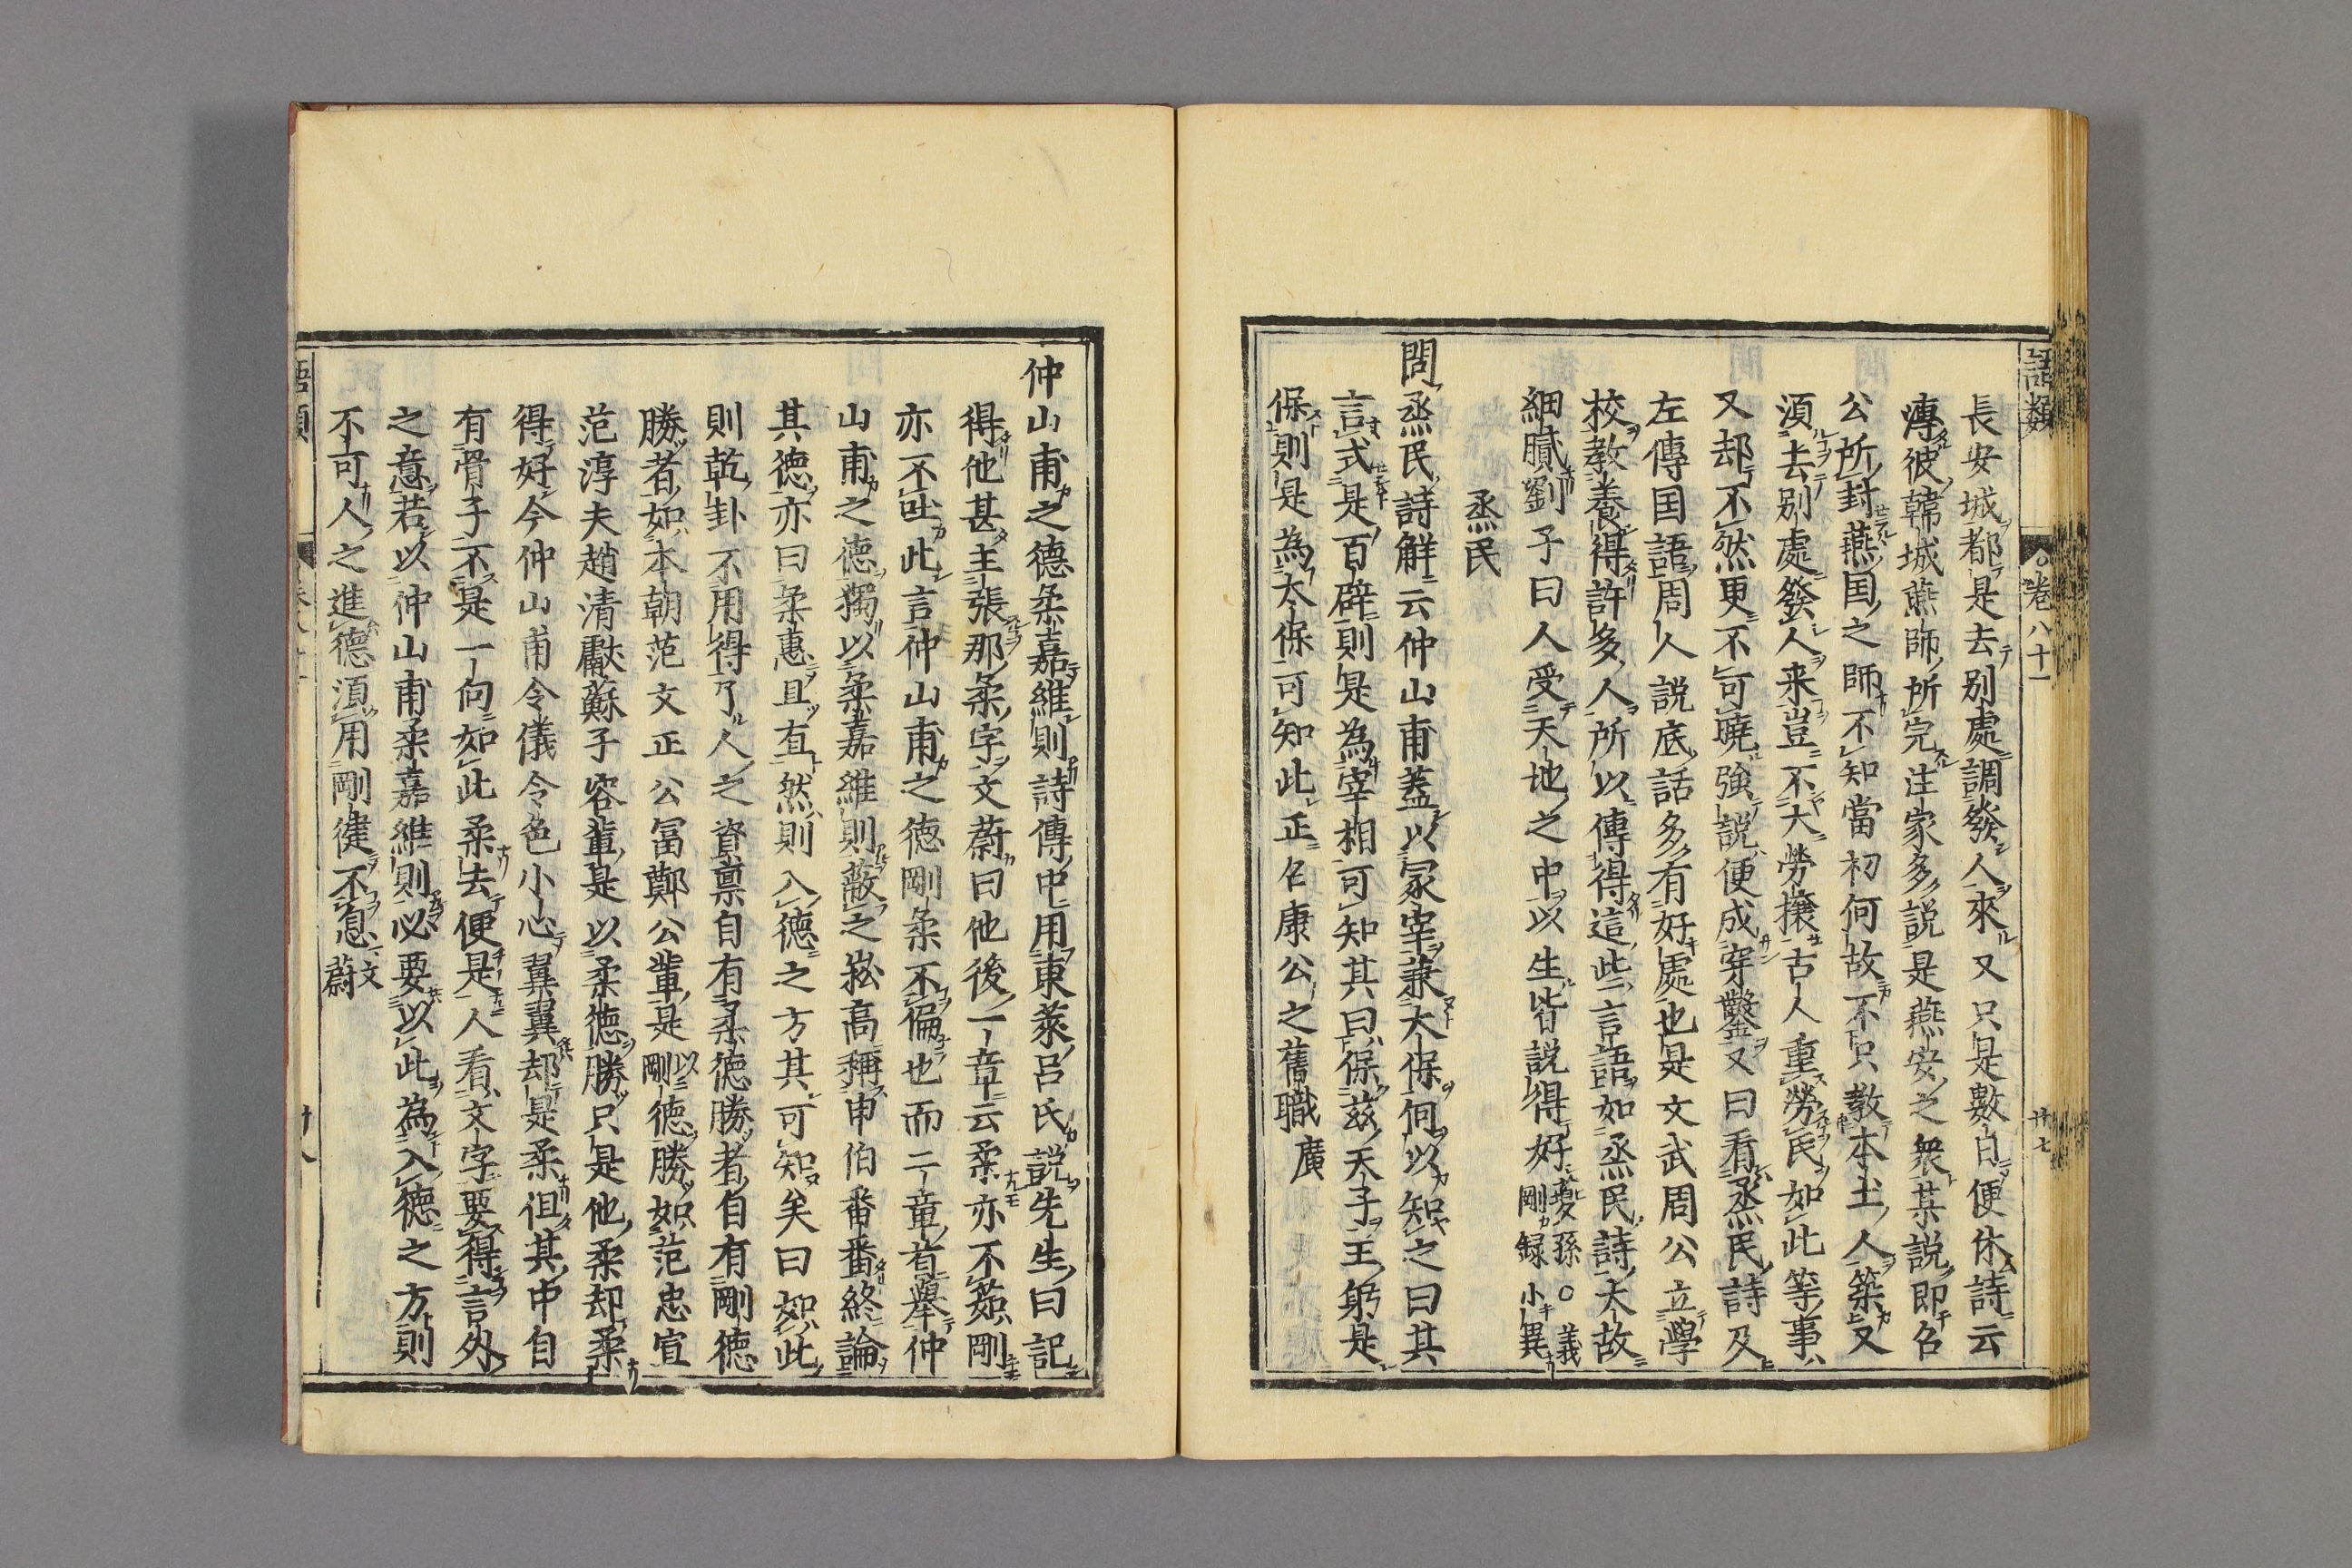 語類 卷八十一 廿七
長安城都是去別處調發人來又只是數日便休詩云
溥彼韓城燕師所完注家多說是燕安之衆某說即召
公所封燕国之師不知當初何故不只教本土人築又
須去別處發人来豈不大勞攘古人重勞民如此等事
又却不然更不可曉強說便成穿鑿又曰看烝民詩及
左傳国語周人說底話多有好處也是文武周公立學
校教養得許多人所以傳得這些言語如烝民詩大故
細膩劉子曰人受天地之中以生皆說得好夔孫○義剛録小異
烝民
問烝民詩解云仲山甫蓋以冢宰兼大保何以知之曰其
言式是百辟則是為宰相可知其曰保茲天子王躬是
保則是為大保可知此正名康公之舊職廣
仲山甫之德柔嘉維則詩傳中用東萊呂氏說先生曰記
得他甚主張那柔字文蔚曰他後一章云柔亦不茹剛
亦不吐此言仲山甫之德剛柔不偏也而二章首舉仲
山甫之德獨以柔嘉維則蔽之崧高稱申伯番番終論
其徳亦曰柔惠且直然則入德之方其可知矣曰如此
則乾卦不用得了人之資禀自有柔德勝者自有剛德
勝者如本朝范文正公冨鄭公輩是以剛徳勝如范忠宣
范淳夫趙清獻蘇子容輩是以柔徳勝只是他柔却柔
得好今仲山甫令儀令色小心翼翼却是柔但其中自
有骨子不是一向如此柔去便是人看文字要得言外
之意若以仲山甫柔嘉維則必要以此為入德之方則
不可人之進德須用剛健不息文蔚